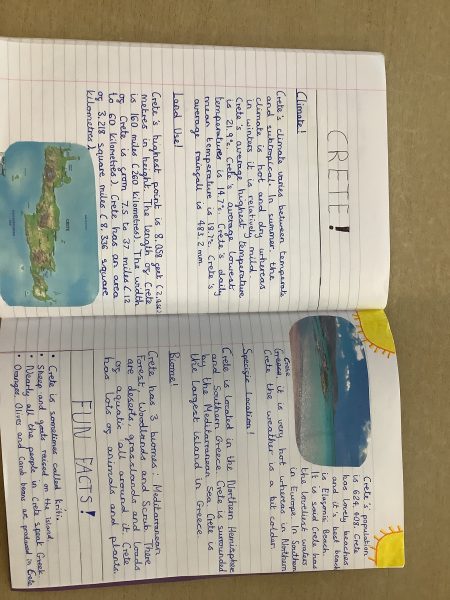 CRETE!
Climate!
Crete's climate varies between temperate
and subtropical. In summer, the
climate is hot and dry whereas
in winters it is relatively mild.
Crete's average highest temperature
is 21.9°c. Crete's average lowest
temperature is 14.7°c. Crete's daily
mean temperature is 18.7°c. Crete's
average rainfall is 483.2 mm
Land Use!
Crete's highest point is 8,058 feet (2,456)
metres in height. The length of Crete
is 160 miles (260 kilometres). The width
of Crete is from 7.5 to 37 miles (12
to 60 kilometres). Crete has an area
of 3,218 square miles (8,336 square
kilometres)
CRETE
Crete's population
is 624,408. Crete
has lovely beaches
and it's best beach
is Elafonisi Beach.
It is said Crete has
the loveliest waters
in Europe. In Southern
Crete
Greece, it is very hot whereas in Northern
Crete the weather is a bit colder.
Specific Location!
Crete is located in the Northern Hemisphere
and Southern Greece. Crete is surrounded
by the Mediterranean Sea. Crete is
the largest island in Greece
Biome!
Crete has 3 biomes: Mediterranean
Forest, Woodlands and Scrub. There
are deserts, grasslands and loads
of aquatic all around it. Crete
has lots of animals and plants.
FUN FACTS!
• Crete is sometimes called Kriti.
Sheep and goats raised on the island.
• Nearly all the people in Crete speak Greek
• Oranges, Olives and Carob beans are produced in Crete